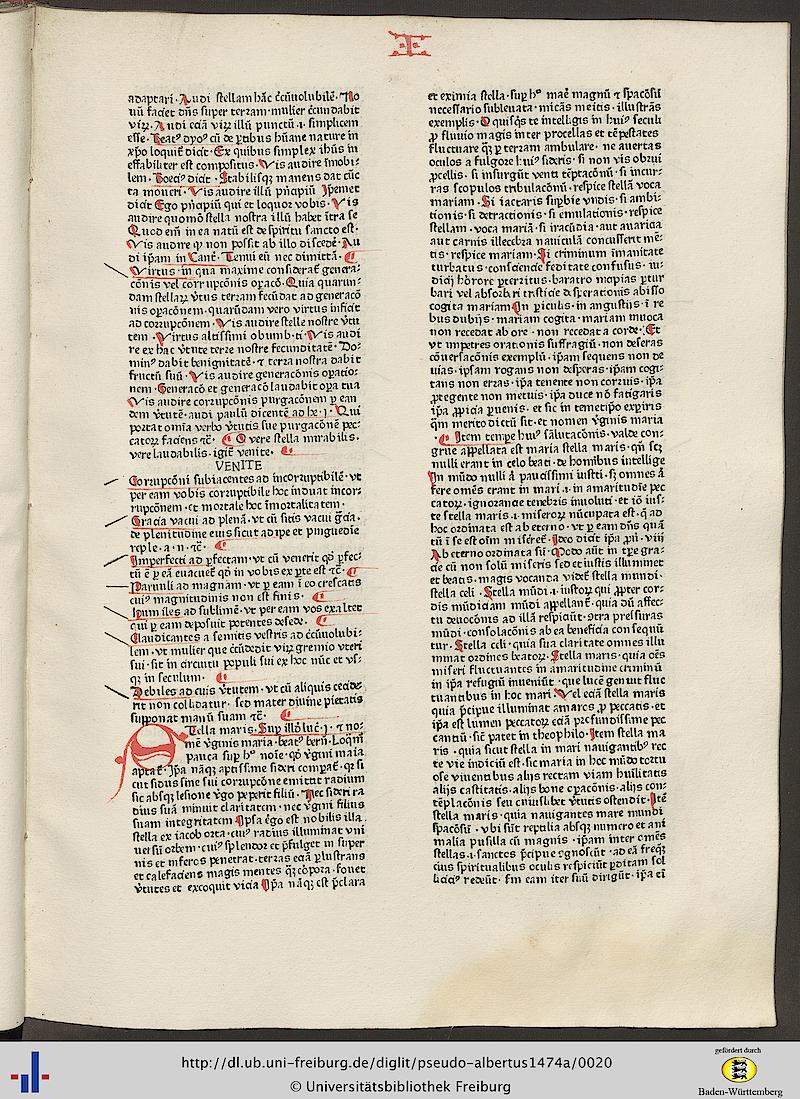 I
adaptari. Audi stellam hāc ꝯcūuolubilē. No
uū faciet dn̄s super terram. mulier ꝯcundabit
virꝝ. Audi eciā virꝝ illū punctū .i. simplicem
esse.
xp̄o loquit᷑ dicit. Ex quibus simplex ihūs in
effabiliter est compositus. Vis audire īmobi-
lem. Boeci᷒ dicit. Stabilisqꝫ manens dat cūc
ta moueri. Vis audire illū pn̄cipiū Ipemet
dicit Ego pn̄cipiū qui et loquor vobis. Vis
audire quomō stella nostra illū habet ītra se
Quod em̄ in ea natū est de spiritu sancto est.
Vis audire ꝙ non possit ab illo discedē. Au
di ip̄am in Cant̄. Tenui eū nec dimittā.
Virtus in qua maxime considerat᷑ genera-
cōnis vel corrupcōnis oꝑacō. Quia quarun-
dam stellaꝝ v̄tus terram fecūdat ad generacō
nis oꝑacōnem. quarūdam vero virtus inficit
ad corrupcōnem. Vis audire stelle nostre v̄tu
tem. Virtus altissimi obumb.ti. Vis audi
re ex hac v̄tute terre nostre fecunditatē. Do-
min᷒ dabit benignitatē. ⁊ terra nostra dabit
fructū suū. Vis audire generacōnis oꝑatio-
nem. Generacō et generacō laudabit oꝑa tua
Vis audire corrupcōnis purgacōnem ꝑ ean
dem v̄tutē. audi paulū dicentē ad he .j. Qui
portat omīa verbo v̄tutis sue purgacōnē pec-
catoꝝ faciens ⁊c̄. O vere stella mirabilis.
vere laudabilis. igit᷑ venite.
VENITE
Corrupcōni subiacentes ad incorruptibilē. vt
per eam vobis corruptibile hoc induat incor-
rupcōnem. et mortale hoc īmortalitatem.
Gracia vacui ad plenā. vt cū sitis vacui gr̄cia.
de plenitudine eius sicut adipe et pinguedīe
reple. a. n. ⁊c̄.
Imperfecti ad ꝑfectam. vt cū venerit qd̄ ꝑfec-
tū ē ꝑ eā euacuet᷑ qd̄ in vobis ex ꝑte est ⁊c̄.
Paruuli ad magnam. vt ꝑ eam ī eo crescatis
cui᷒ magnitudinis non est finis.
Humiles ad sublimē. vt per eam vos exaltet
qui ꝑ eam deposuit potentes de sede.
Claudicantes a semitis vestris ad ꝯcūuolubi-
lem. vt mulier que ꝯcūdedit virꝝ gremio vteri
sui. sit in circuitu populi sui ex hoc nūc et vs-
qꝫ in seculum.
Debiles ad cuis v̄tutem. vt cū aliquis cecide-
rit non collidatur. sed mater diuine pietatis
supponat manū suam ⁊c̄.
STella maris. Suꝑ illo luc̄ .j. ⁊ no-
mē v̄ginis maria. beat᷒ bern̄. Loqm̄
pauca suꝑ h᷒ noīe. qd̄ v̄gini maīa
aptat᷑. Ip̄a nāqꝫ aptissime sideri compat᷑. qꝛ si
cut sidus sine sui corrupcōne emittit radium
sic absqꝫ lesione v̄go peperit filiū. Nec sideri ra
dius suā minuit claritatem. nec v̄gini filius
suam integritatem. Ipsa ḡo est nobilis illa.
stella ex iacob orta. cui᷒ radius illuminat vni
uersū orbem. cui᷒ splendor et p̄fulget in super
nis et inferos penetrat. terras eciā ꝑlustrans
et calefaciens magis mentes qꝫ corpora. fouet
v̄tutes et excoquit vicia. Ip̄a nāqꝫ est p̄clara
et eximia stella. suꝑ h᷒ mar̄ magnū ⁊ spacōsū
necessario subleuata. micās meitis. illustrās
exemplis. O quisqs te intelligis in hui᷒ seculi
ꝓ fluuio magis inter procellas et tēpestates
fluctuare qꝫ ꝑ terram ambulare. ne auertas
oculos a fulgore hui᷒ sideris. si non vis obrui
ꝓcellis. si insurgūt venti tēptacōnū. si incur-
ras scopulos tribulacōnū. respice stellā voca
mariam. Si iactaris suꝑbie vndis. si ambi-
tionis. si detractionis. si emulationis. respice
stellam. voca mariā. si iracūdia. aut auaricia.
aut carnis illecebra nauiculā concusserit mē-
tis. respice mariam. Si criminum īmanitate
turbatus. consciencie feditate confusus. iu-
dicij horrore ꝑterritus. baratro incipias ꝑtur
bari vel absorbri tristicie desperationis abisso
cogita mariam. In ꝑiculis. in angustijs. ī re
bus dubijs. mariam cogita. mariam inuoca
non recedat ab ore. non recedat a corde. Et
vt impetres orationis suffragiū. non deseras
cōuersacōnis exemplū. ip̄am sequens non de
uias. ip̄sam rogans non desperas. ip̄am cogi-
tans non erras. ip̄a tenente non corruis. ip̄a
ꝓtegente non metuis. ip̄a duce nō fatigaris
ip̄a ꝓpicia ꝑuenis. et sic in temetip̄o exꝑiris
qm̄ merito dictū sit. et nomen v̄ginis maria
Item tempe hui᷒ salutacōnis. valde con-
grue appellata est maria stella maris. qn̄ scꝫ
nulli erant in celo beati. de hominibus intellige
In mūdo nulli aut paucissimi iusti. sꝫ omnes
fere omēs erant in mari .i. in amaritudīe pec
catoꝝ. ignorancie tenebris inuoluti. et iō ius-
te stella maris .i. miseroꝝ nūcupata est. q̄ ad
hoc ordinata est ab eterno. vt ꝑ eam dn̄s quā
tū ī se est oīm miseret᷑. Ideo dicit ip̄a ꝓū .viij
Ab eterno ordinata sū. Modo aūt in tꝑe gra-
cie cū non solū miseris sed et iustis illuminet
et beatis. magis vocanda videt᷑ stella mundi.
stella celi. Stella mūdi .i. iustoꝝ qui ꝓpter cor-
dis mūdiciam mūdi appellant᷑. quia dū affec-
tu deuocōnis ad illā respiciūt. ꝯtra pressuras
mūdi. consolacōnis ab ea beneficia consequū
tur. Stella celi. quia sua claritate omnes illu
minat ordines beatoꝝ. Stella maris. quia oēs
miseri fluctuantes in amaritudine criminū
in ip̄a refugiū inueniūt. que lucē genuit fluc
tuantibus in hoc mari. Vel eciā stella maris
quia p̄cipue illuminat amaros ꝓ peccatis. et
ip̄a est lumen peccatoꝝ eciā profundissime pec
cantiū. sic patet in theophilo. Item stella ma
ris. quia sicut stella in mari nauigantib᷒ rec
te vie indiciū est. sic maria in hoc mūdo tortu
ose viuentibus alijs rectam viam hūilitatis
alijs castitatis. alijs bone oꝑacōnis. alijs con-
tēplacōnis seu cuiuslibet v̄tutis ostendit. Itē
stella maris. quia nauigantes mare mundi
spacōsū. vbi sūt reptilia absqꝫ numero et ani
malia pusilla cū magnis. ip̄am inter omēs
stellas .i. sanctos p̄cipue ꝯgnoscūt. ad eā freqꝫ
cius spiritualibus oculis respiciūt ꝑditam sol
licici᷒ redeūt. fm eam iter suū dirigūt. ip̄a eī
http://dl.ub.uni-freiburg.de/diglit/pseudo-albertus1474a/0020
© Universitätsbibliothek Freiburg
gefördert durch
Baden-Württemberg